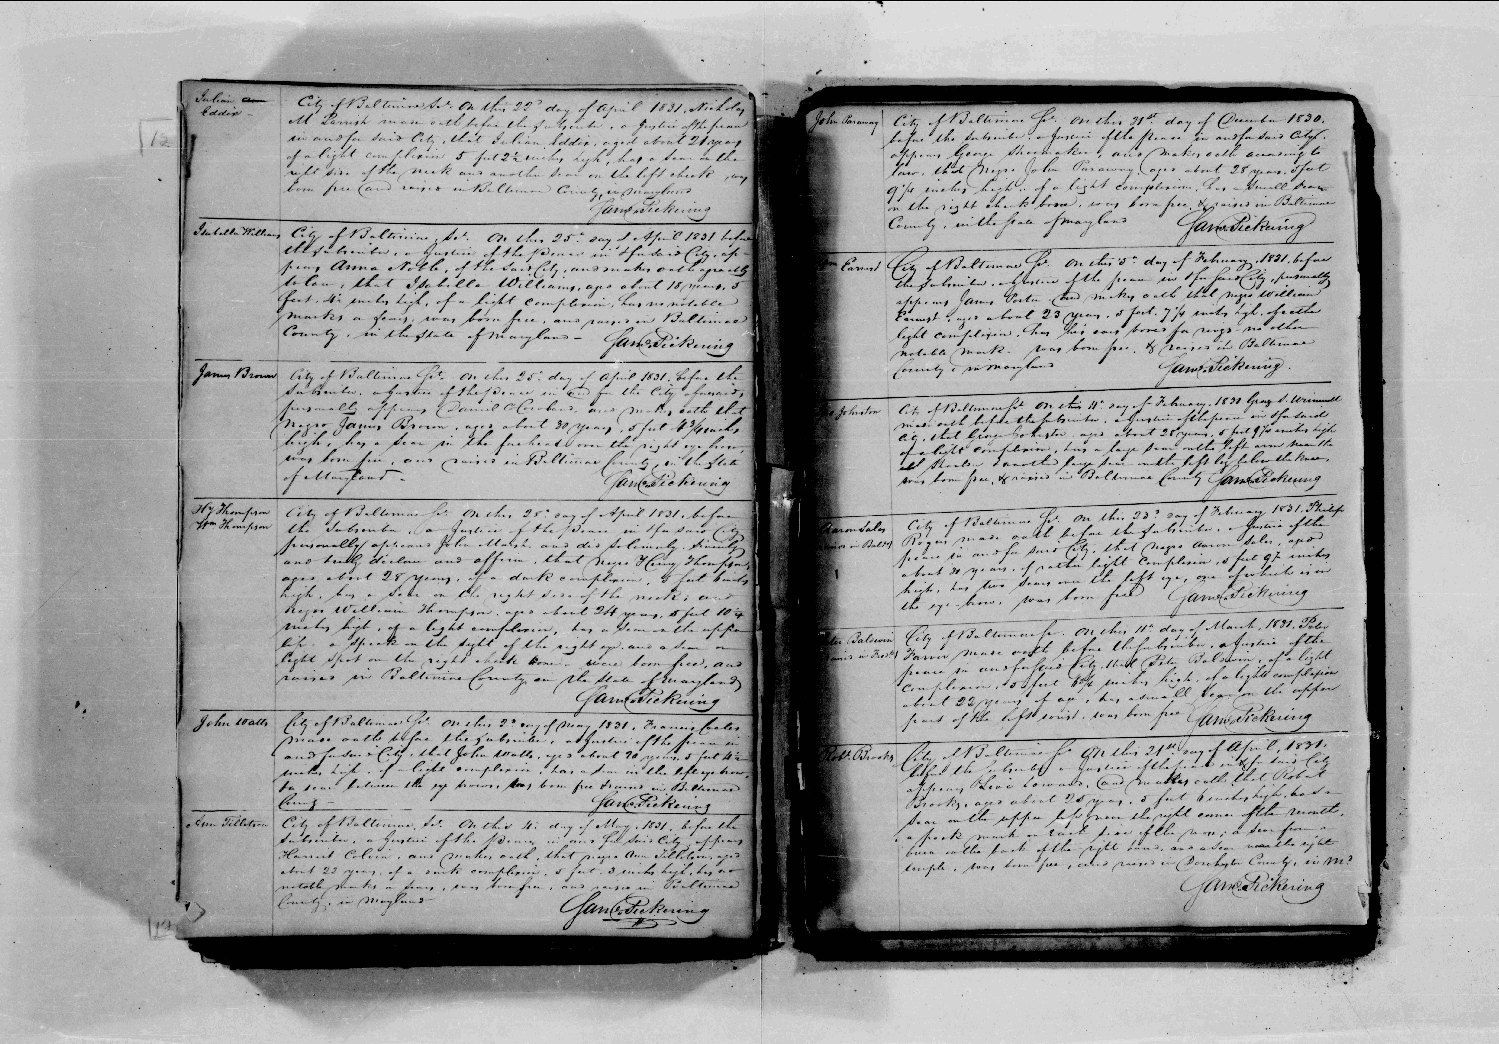 Julian
Eddin
City of Baltimore Sct. On this 22d day of April 1831, Nicholas
M Parrish made oath before the subscriber, a Justice of the peace
in and for said City, that Julian Eddin, aged about 21 years
of a light complexion 5 feet 2½ inches high, has a scar on the
right side of the neck and another scar on the left cheek, was
born free and raised in Baltimore County in Maryland
Jas. Pickering
Isabella Williams
City of Baltimore, Sct. On this 25th day of April 1831 before
the subscriber, a Justice of the Peace in & for said City, ap-
pears Anna North, of the said City, and makes oath agreeably
to law, that Isabella Williams, aged about 18 years, 5
feet 4 inches high, of a light complexion, has no notable
marks or scars, was born free, and raised in Baltimore
County, in the State of Maryland —
Jas. Pickering
James Brown
City of Baltimore Sct. On this 25th day of April 1831, before the
subscriber, a Justice of the Peace in and for the City aforesaid,
personally appears Daniel and makes oath that
Negro James Brown, aged about 30 years, 5 feet 4¾ inches
high, has a scar in the forehead over the right eye brow,
was born free, and raised in Baltimore County, in the State
of Maryland —
Jas. Pickering
Hy Thompson
Wm Thompson
City of Baltimore Sct. On this 28th day of April 1831, before
the subscriber, a Justice of the Peace in & for said City
personally appears John Marsh and did solemnly, sincerely
and truly declare and affirm, that negro Henry Thompson,
aged about 28 years, of a dark complexion, 5 feet inches
high, has a scar on the right side of the neck; and
negro William Thompson, aged about 24 years, 5 feet 10¼
inches high, of a light complexion, has a scar on the upper
lip a speck on the sight of the right eye and a scar or
light spot on the right cheek bone — were born free, and
raised in Baltimore County in the State of Maryland
Jas. Pickering
John Watts
City of Baltimore Sct. On this 2d day of May 1831, Francis Coates
made oath before the subscriber, a Justice of the peace in
and for said City, that John Watts, aged about 20 years, 5 feet 4½
inches high, of a light complexion, has a scar in the left eye brow,
scar between the eye brows, was born free & raised in Baltimore
County —
Jas. Pickering
Ann Tillotson
City of Baltimore, Sct. On this 4th day of May, 1831, before the
subscriber, a Justice of the Peace, in and for said City, appears
Harriet Colvin, and makes oath, that negro Ann Tillotson, aged
about 22 years, of a dark complexion, 5 feet 3 inches high, has no
notable marks or scars, was born free, and raised in Baltimore
County, in Maryland —
Jas. Pickering
John Paraway
City of Baltimore Sct. On this 31st day of December 1830,
before the subscriber, a Justice of the Peace in and for said City,
appears George Shoemaker, and makes oath according to
law, that Negro John Paraway, aged about 28 years, 5 feet
9¾ inches high, of a light complexion, has a small scar
on the right cheek bone, was born free, & raised in Baltimore
County, in the State of Maryland
Jas. Pickering
Wm Earnest
City of Baltimore Sct. On this 3d day of February, 1831, before
the subscriber, a Justice of the peace in & for said City, personally
appears James Porter and makes oath that negro William
Earnest, aged about 23 years, 5 feet 7¼ inches high, of rather
light complexion, has his ears bored for rings no other
notable mark — was born free, & raised in Baltimore
County, in Maryland
Jas. Pickering
Johnston
City of Baltimore Sct. On this 11th day of February, 1831 George S.
made oath before the subscriber, a Justice of the peace in & for said
City, that George Johnston, aged about 28 years, 5 feet 9¼ inches high
of a light complexion, has a large scar on the left arm near the
shoulder & another large scar on the left leg below the knee,
was born free, & raised in Baltimore County
Jas. Pickering
Aaron Sales
raised in Balto
City of Baltimore Sct. On this 23d day of February 1831, Philip
Rogers made oath before the subscriber, a Justice of the
peace in and for said City, that Negro Aaron Sales, aged
about 30 years, of rather light complexion, 5 feet 9½ inches
high, has two scars over the left eye, one of which is in
the eye-brow, was born free
Jas. Pickering
Peter Baldwin
City of Baltimore Sct. On this 11th day of March, 1831, Peter
made oath before the subscriber, a Justice of the
peace in and for said City, that Peter Baldwin, of a light
complexion, 5 feet inches high, of a light complexion
about 22 years of age, has a small scar on the upper
part of the left wrist, was born free
Jas. Pickering
Robt. Brooks
City of Baltimore Sct. On this 21st day of April, 1831,
before the subscriber a Justice of the peace in & for said City
appears Howard, and makes oath, that Robert
Brooks, aged about 25 years, 5 feet 6 inches high, has a
scar on the upper lip near the right corner of the mouth,
a pock mark on each side of the nose; a scar from a
burn on the back of the right hand, and a scar near the right
temple, was born free, and raised in Dorchester County, in Md
Jas. Pickering